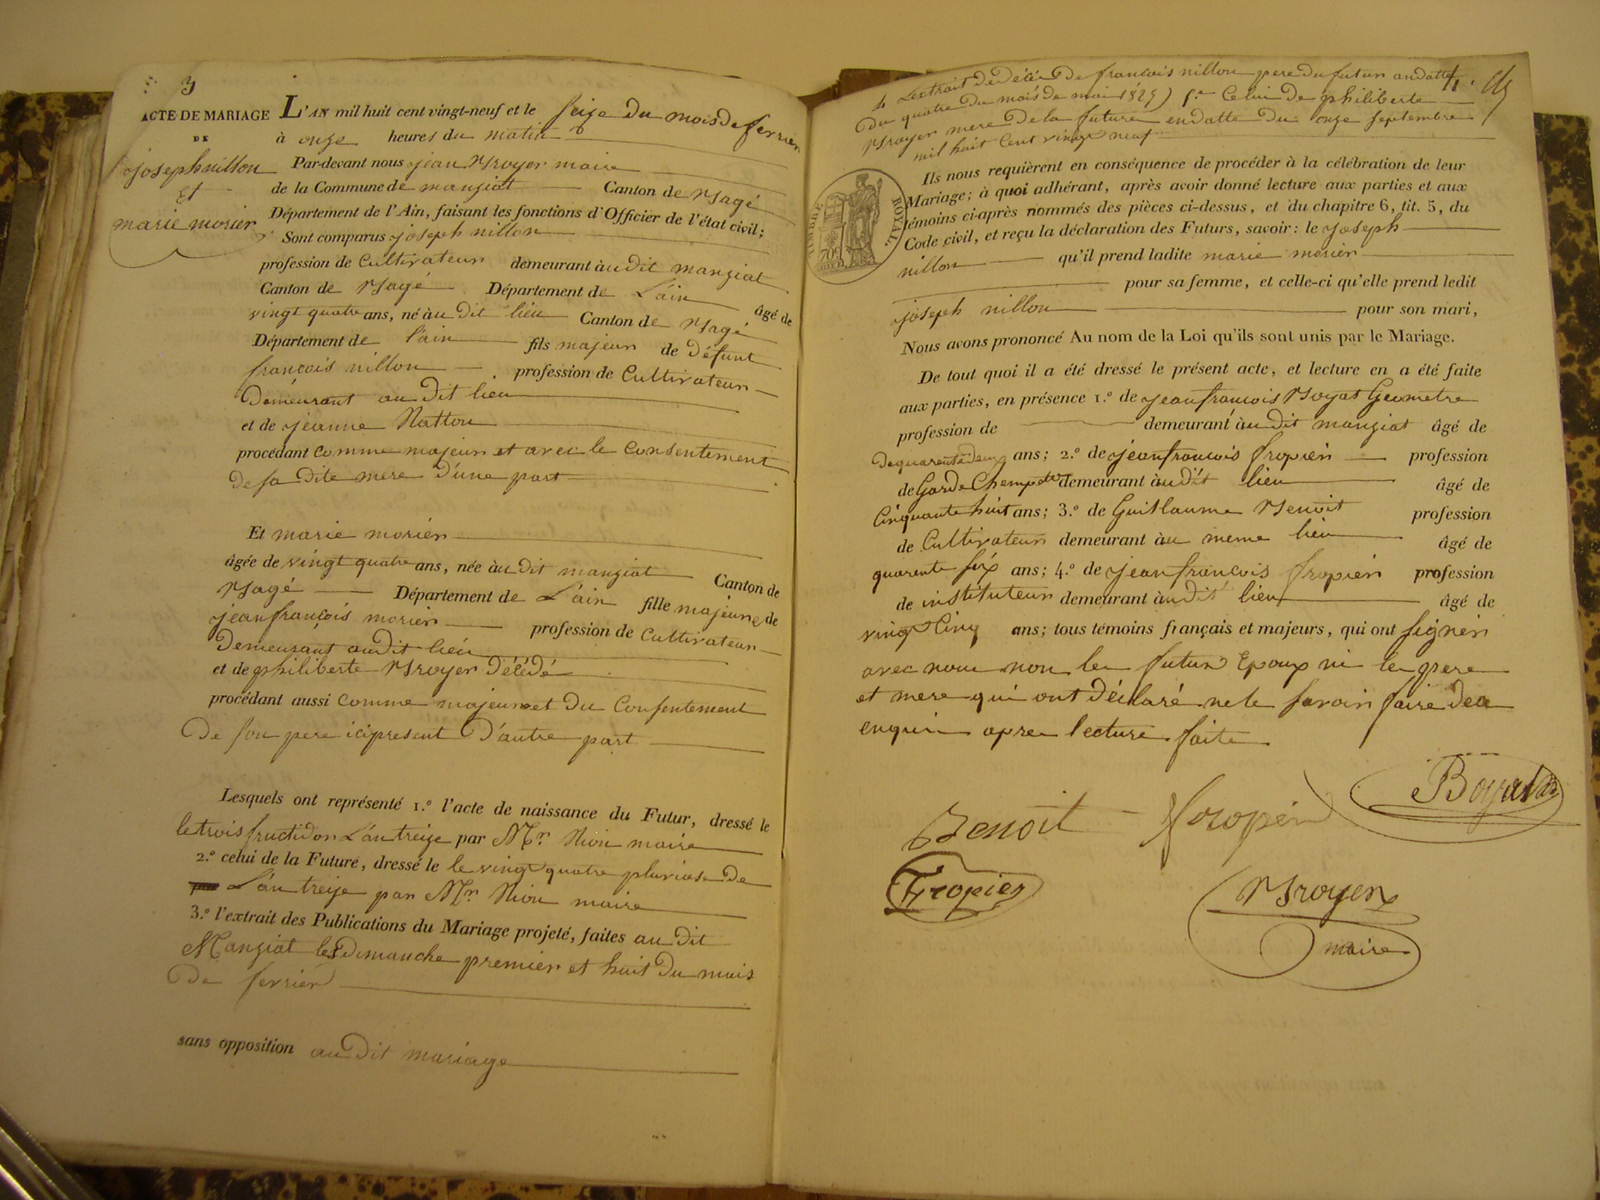 3
ACTE DE MARIAGE
DE
joseph nillon
Et
marie morier
L'AN mil huit cent vingt-neuf et le seize du mois de fevrier
à onze heures du matin
Par-devant nous jean Broyer maire
de la Commune de mangiat Canton de Bagé
Département de l'Ain, faisant les fonctions d'Officier de l'état civil;
Sont comparus joseph nillon
profession de Cultivateur demeurant àu dit mangiat
Canton de Bagé Département de L'ain âgé de
vingt quatre ans, né àu dit lieu Canton de Bagé
Département de l'ain fils majeur de défunt
françois nillon profession de Cultivateur
Demeurant au dit lieu
et de jeanne Natton
procédant comme majeur et avec le Consentement
de sa dite mere d'une part
Et marie morier
âgée de vingt quatre ans, née àu dit mangiat Canton de
Bagé Département de L'ain fille majeure de
jeanfrançois morier profession de Cultivateur
Demeurant audit lieu
et de philiberte Broyer Décédé
procédant aussi comme majeure et du Consentement
De son pere ici present D'autre part
Lesquels ont représenté 1.º l'acte de naissance du Futur, dressé le
le trois fructidor L'an treize par Mr. Nion maire
2.º celui de la Future, dressé le le vingt quatre pluviose De
L'an treize par Mr. Nion maire
3.º l'extrait des Publications du Mariage projeté, faites au dit
Mangiat les dimanche premier et huit Du mois
De fevrier
sans opposition au dit mariage
4.
4 Lextrait de Décé De françois nillon pere du futur en datte
Du quatre Du mois de mai 1825) 5.º Celui De philiberte
Broyer mere De la future en datte Du onze septembre
mil huit Cent vingt neuf
TIMBRE ROYAL.
Ils nous requièrent en conséquence de procéder à la célébration de leur
Mariage; à quoi adhérant, après avoir donné lecture aux parties et aux
témoins ci-après nommés des pièces ci-dessus, et du chapitre 6, tit. 5, du
Code civil, et reçu la déclaration des Futurs, savoir: le joseph
nillon qu'il prend ladite marie morier
pour sa femme, et celle-ci qu'elle prend ledit
joseph nillon pour son mari,
Nous avons prononcé Au nom de la Loi qu'ils sont unis par le Mariage.
De tout quoi il a été dressé le présent acte, et lecture en a été faite
aux parties, en présence 1.º de jeanfrancois Boyat Geometre
profession de demeurant àu dit mangiat âgé de
de quarente deux ans; 2.º de jeanfrancois fropier profession
de Garde Champetre demeurant àu dit lieu âgé de
Cinquante huit ans; 3.º de Guillaume Benoit profession
de Cultivateur demeurant àu meme lieu âgé de
quarente six ans; 4.º de jeanfrancois fropier profession
de instituteur demeurant àu dit lieu âgé de
vingt Cinq ans; tous témoins français et majeurs, qui ont signér
avec nous non les futur Epoux ni les pere
et mere qui ont déclaré ne le savoir faire de ce
enquir apres lecture faite
Benoit fropier Boyat
Fropier Broyer
maire